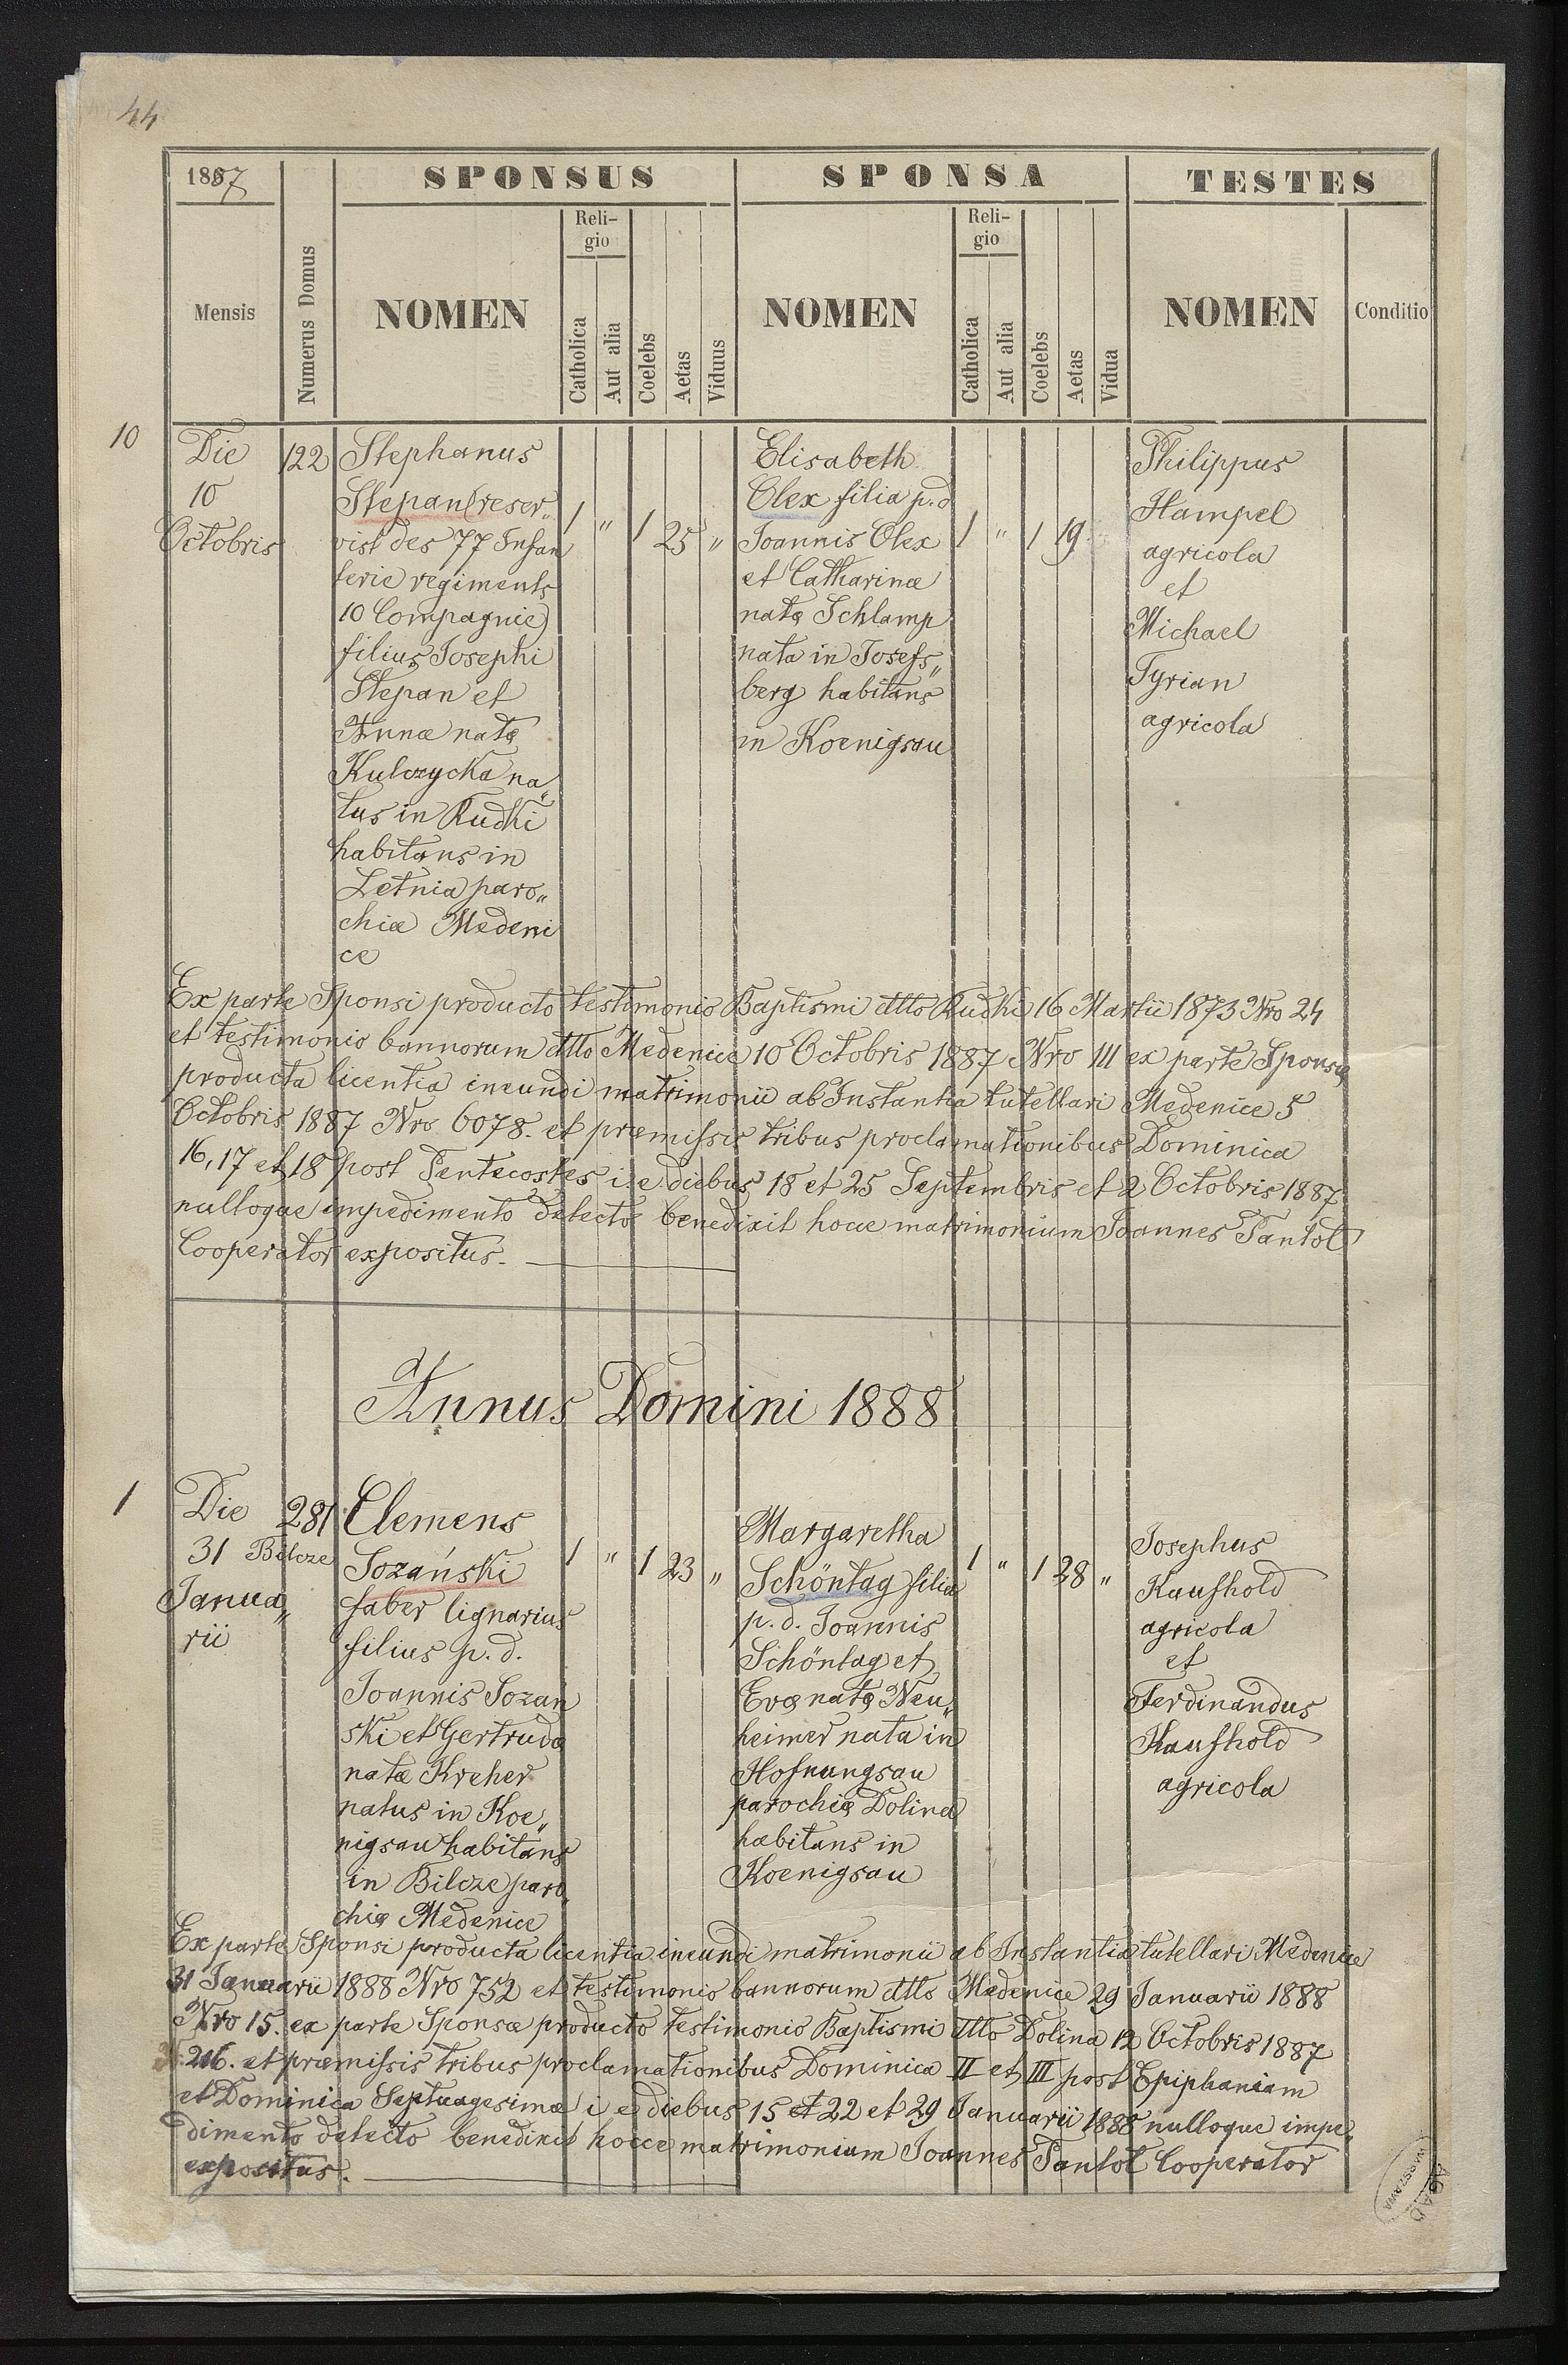 44
1887
SPONSUS
SPONSA
TESTES
Mensis
Numerus Domus
NOMEN
Reli-
gio
Catholica
Aut alia
Coelebs
Aetas
Viduus
NOMEN
Reli-
gio
Catholica
Aut alia
Coelebs
Aetas
Vidua
NOMEN
Conditio
10
Die
10
Octobris
122
Stephanus
Stepan (reser„
vist des 77 Infan
terie regiments
10 Compagnie)
filius Josephi
Stepan et
Annæ natæ
Kulczycka na„
tus in Rudki
habitans in
Letnia paro„
chiæ Medeni
ce
1 " 1 25 "
Elisabeth
Olex filia p. d
Joannis Olex
et Catharinæ
natæ Schlamp
nata in Josefs„
berg habitans
in Koenigsau
1 " 1 19
Philippus
Hampel
agricola
et
Michael
Tyrian
agricola
Ex parte Sponsi producto testimonio Baptismi dtto Rudki 16 Martii 1873 Nro 24
et testimonio bannorum dtto Medenice 10 Octobris 1887 Nro 111 ex parte Sponsæ
producta licentia ineundi matrimonii ab Instantia tutellari Medenice 5
Octobris 1887 Nro 6078. et præmissis tribus proclamationibus Dominica
16, 17 et 18 post Pentecostes i. e. diebus 18 et 25 Septembris et 2 Octobris 1887
nulloque impedimento detecto benedixit hocce matrimonium Joannes Pantol
Cooperator expositus.
Annus Domini 1888
1
Die
31
Janua„
rii
281
Bilcze
Clemens
Sozański
faber lignarius
filius p. d.
Joannis Sozan
ski et Gertrudæ
natæ Kreher
natus in Koe„
nigsau habitans
in Bilcze paro„
chiæ Medenice
1 " 1 23 "
Margaretha
Schöntag filia
p. d. Joannis
Schöntag et
Evæ natæ Neu„
heimer nata in
Hofnungsau
parochiæ Dolina
habitans in
Koenigsau
1 " 1 28 "
Josephus
Kaufhold
agricola
et
Ferdinandus
Kaufhold
agricola
Ex parte Sponsi producta licentia ineundi matrimonii ab Instantia tutellari Medenice
31 Januarii 1888 Nro 752 et testimonio bannorum dtto Medenice 29 Januarii 1888
Nro 15. ex parte Sponsæ producto testimonio Baptismi dtto Dolina 12 Octobris 1887
N. 216. et præmissis tribus proclamationibus Dominica II et III post Epiphaniam
et Dominica Septuagesimæ i e diebus 15 et 22 et 29 Januarii 1888 nulloque impe„
dimento detecto benedixit hocce matrimonium Joannes Pantol Cooperator
expositus.
AGAD
WARSZAWA